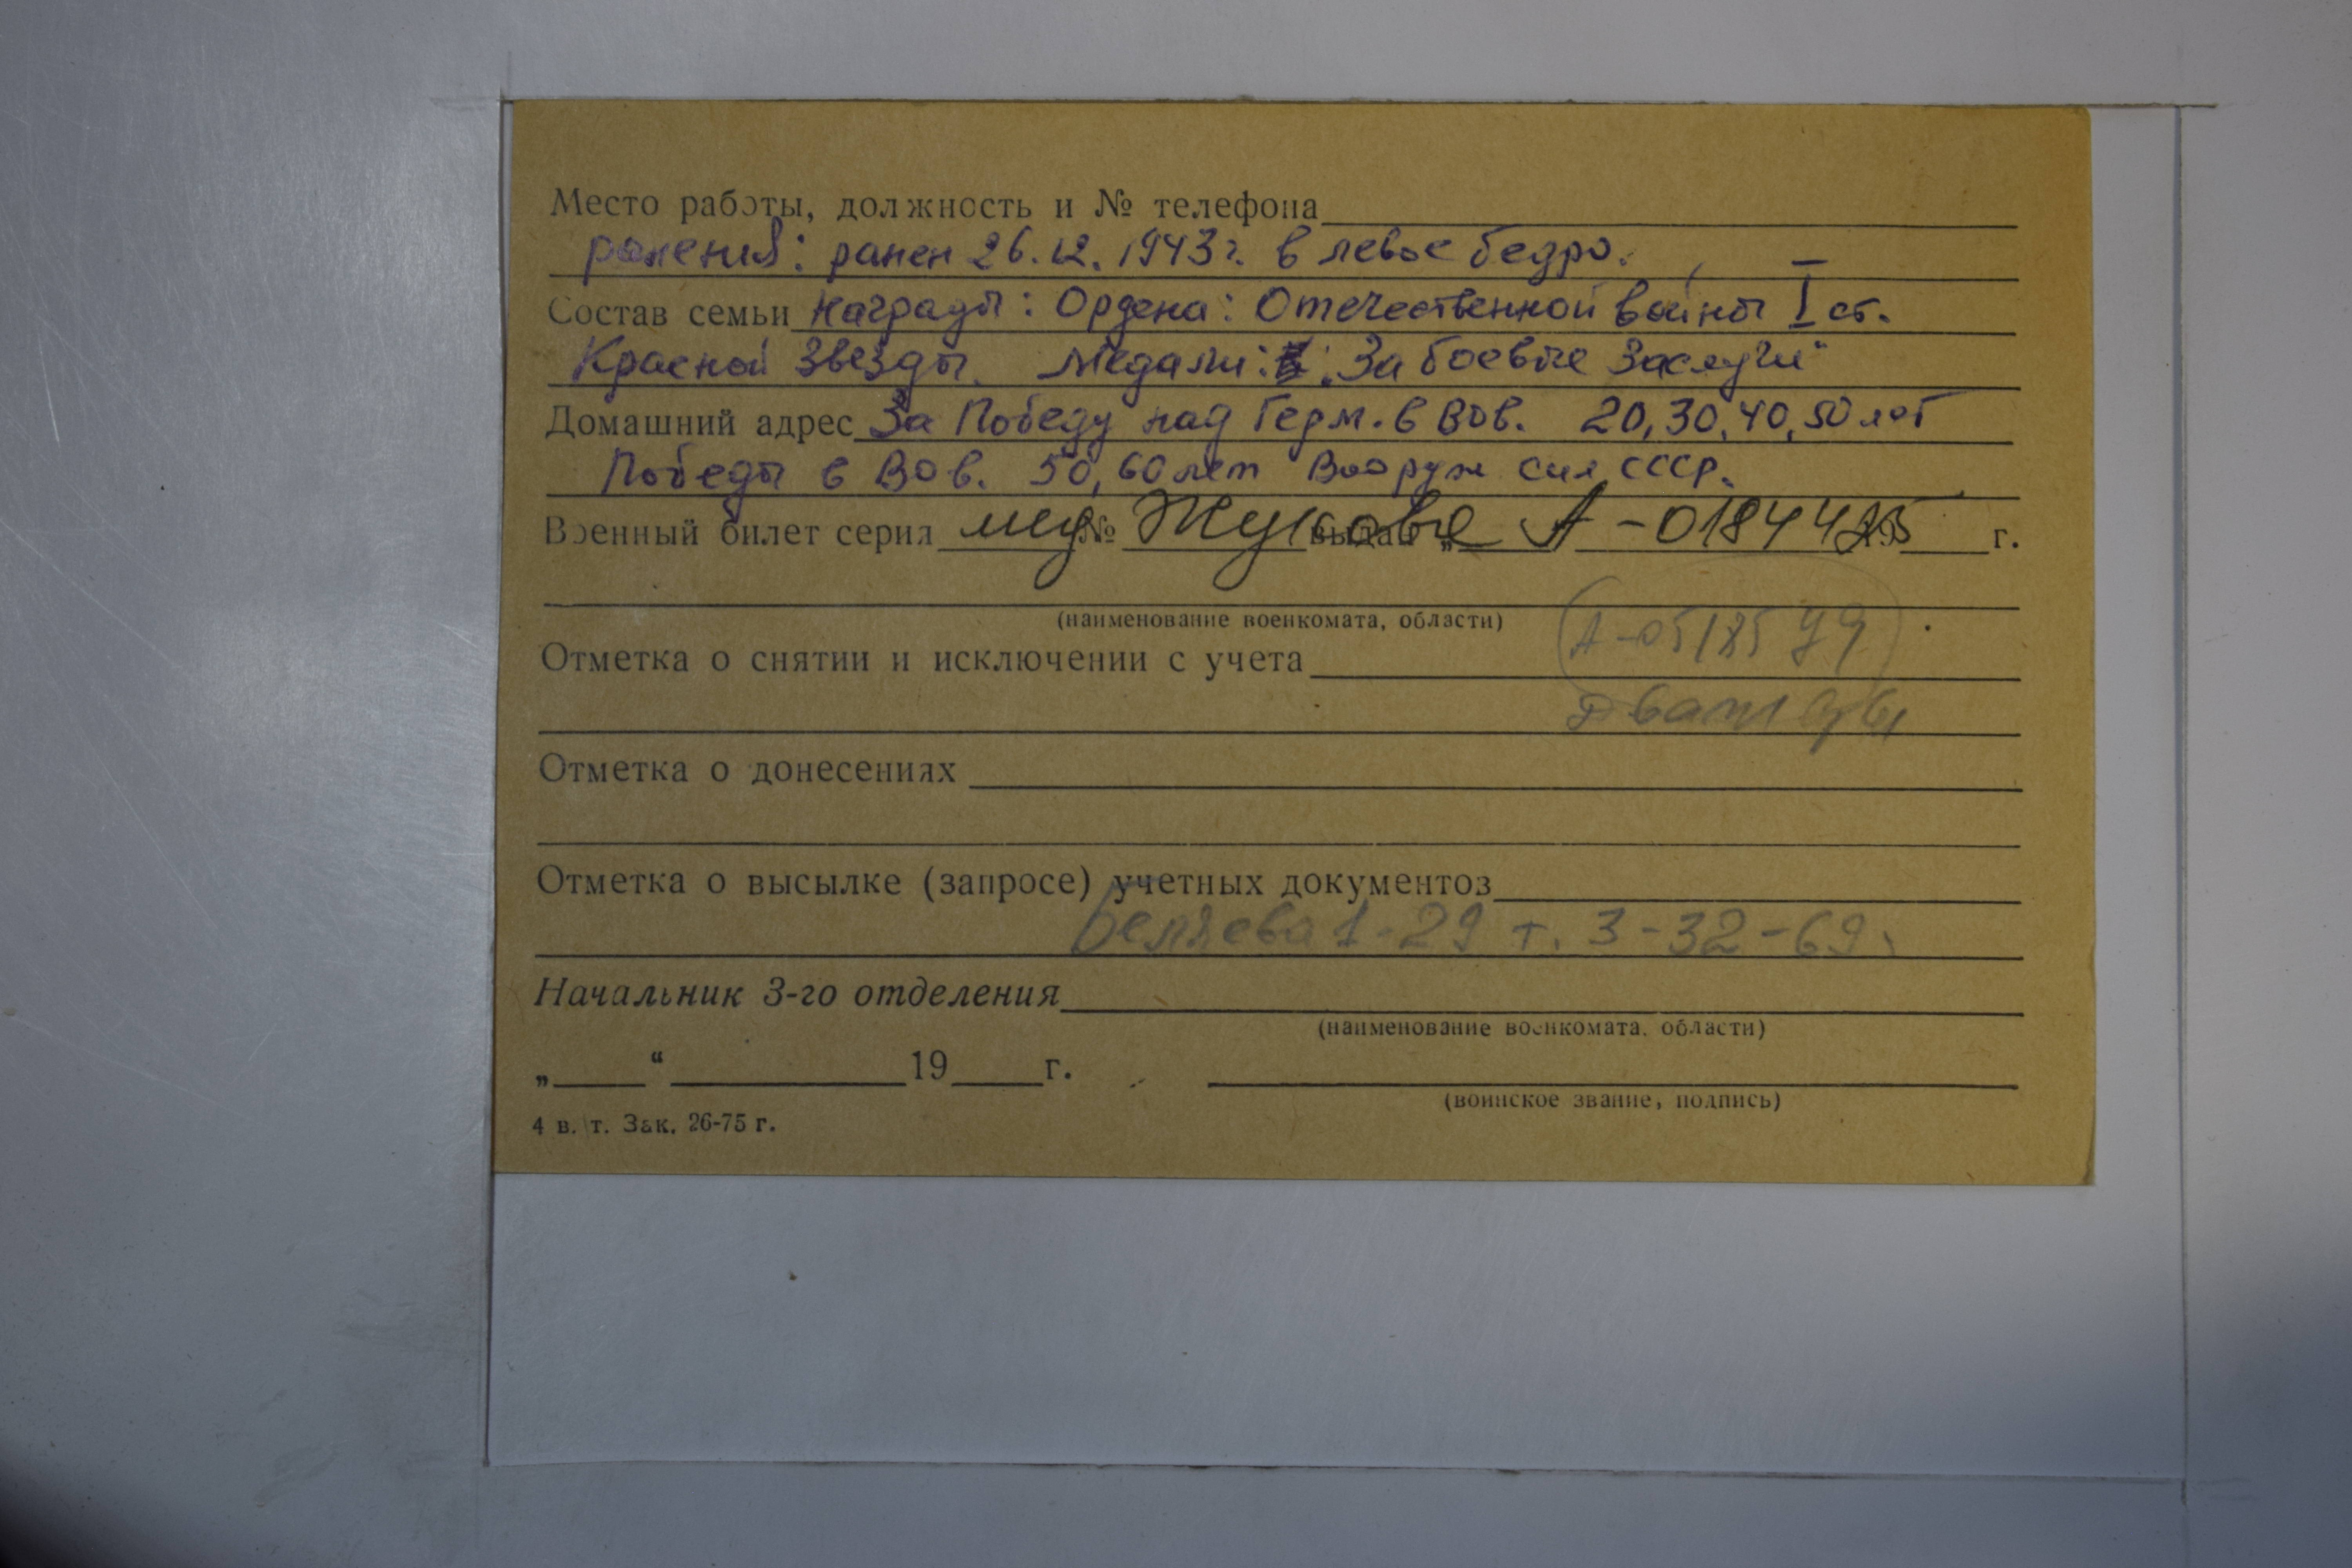 Место работы, должность и № телефона
ранения: ранен 26.12.1943г. в левое бедро.
Состав семьи Награды: Ордена: Отечественной войны I ст.
Красной Звезды. Медали: „За боевые заслуги"
Домашний адрес За Победу над Герм. в ВОв. 20, 30, 40, 50 лет
Победы в ВОв. 50, 60 лет Вооруж сил СССР.
Военный билет серия мед № Жукова выдан „ А-0184425 19 г.
(наименование военкомата, области)
А-0518579
Отметка о снятии и исключении с учета
Дважды
Отметка о донесениях
Отметка о высылке (запросе) учетных документов
Беляева 1-29 т. 3-32-69.
Начальник 3-го отделения
(наименование военкомата, области)
„ “ 19 г.
(воинское звание, подпись)
4 в. т. Зак. 26-75 г.